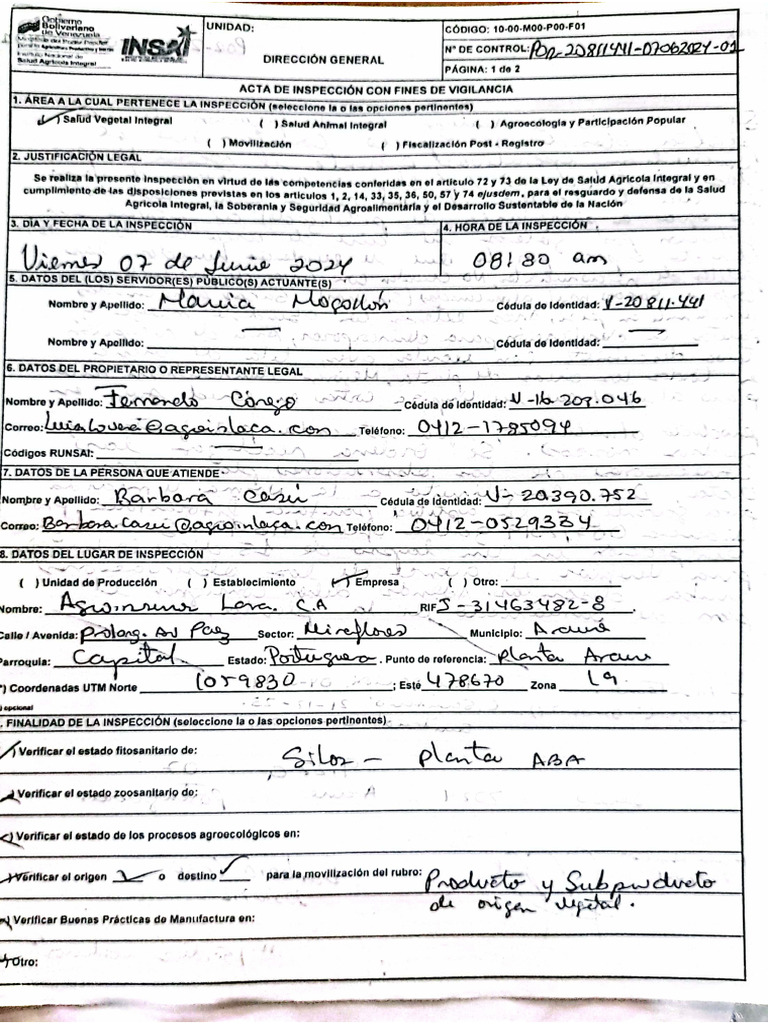 Gobierno
Bolivariano
de Venezuela
Instituto Nacional de
Salud Agrícola Integral
INSAI
UNIDAD:
DIRECCIÓN GENERAL
CÓDIGO: 10-00-M00-P00-F01
N° DE CONTROL: Por-20811441-07062024-01
PÁGINA: 1 de 2
ACTA DE INSPECCIÓN CON FINES DE VIGILANCIA
1. ÁREA A LA CUAL PERTENECE LA INSPECCIÓN (seleccione la o las opciones pertinentes)
(✓) Salud Vegetal Integral ( ) Salud Animal Integral ( ) Agroecología y Participación Popular
( ) Movilización ( ) Fiscalización Post - Registro
2. JUSTIFICACIÓN LEGAL
Se realiza la presente inspección en virtud de las competencias conferidas en el artículo 72 y 73 de la Ley de Salud Agrícola Integral y en
cumplimiento de las disposiciones previstas en los artículos 1, 2, 14, 33, 35, 36, 50, 57 y 74 ejusdem, para el resguardo y defensa de la Salud
Agrícola Integral, la Soberanía y Seguridad Agroalimentaria y el Desarrollo Sustentable de la Nación
3. DÍA Y FECHA DE LA INSPECCIÓN
4. HORA DE LA INSPECCIÓN
Viernes 07 de Junio 2024
08:80 am
5. DATOS DEL (LOS) SERVIDOR(ES) PÚBLICO(S) ACTUANTE(S)
Nombre y Apellido: Maria Mogollón Cédula de Identidad: V-20811.441
Nombre y Apellido: — Cédula de Identidad: —
6. DATOS DEL PROPIETARIO O REPRESENTANTE LEGAL
Nombre y Apellido: Fernando Cédula de Identidad: V-16.209.046
Correo: @agroinlaca.com Teléfono: 0412-1785094
Códigos RUNSAI: —
7. DATOS DE LA PERSONA QUE ATIENDE
Nombre y Apellido: Barbara Casú Cédula de Identidad: V-20390.752
Correo: Barbara.Casu@agroinlaca.com Teléfono: 0412-0529334
8. DATOS DEL LUGAR DE INSPECCIÓN
( ) Unidad de Producción ( ) Establecimiento (✓) Empresa ( ) Otro:
Nombre: Agroinsumos Lara. C.A RIF J-31463482-8
Calle / Avenida: Prolong. Av Paez Sector: Miraflores Municipio: Araure
Parroquia: Capital Estado: Portuguesa. Punto de referencia: Planta Araure
(*) Coordenadas UTM Norte 1059830; Este 478670 Zona 19
(*) opcional
. FINALIDAD DE LA INSPECCIÓN (seleccione la o las opciones pertinentes)
Verificar el estado fitosanitario de: Silos - Planta ABA
Verificar el estado zoosanitario de:
Verificar el estado de los procesos agroecológicos en:
Verificar el origen ✓ o destino ✓ para la movilización del rubro: Producto y Subproducto
de origen vegetal.
Verificar Buenas Prácticas de Manufactura en:
Otro: